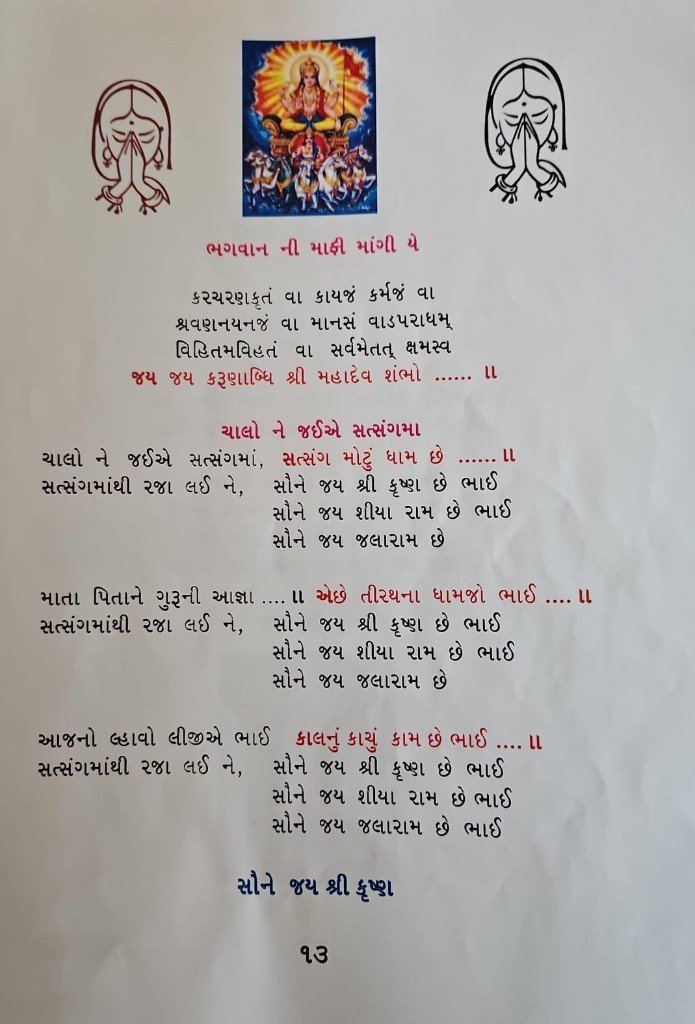 ભગવાન ની માફી માંગી યે
કરચરણકૃતં વા કાયજં કર્મજં વા
શ્રવણનયનજં વા માનસં વાડપરાધમ્
વિહિતમવિહતં વા સર્વમેતત્ ક્ષમસ્વ
જય જય કરૂણાબ્ધિ શ્રી મહાદેવ શંભો ...... ॥
ચાલો ને જઈએ સત્સંગમા
ચાલો ને જઈએ સત્સંગમાં, સત્સંગ મોટું ધામ છે ...... ॥
સત્સંગમાંથી રજા લઈ ને, સૌને જય શ્રી કૃષ્ણ છે ભાઈ
સૌને જય શીયા રામ છે ભાઈ
સૌને જય જલારામ છે
માતા પિતાને ગુરૂની આજ્ઞા .... ॥ એછે તીરથના ધામજો ભાઈ .... ॥
સત્સંગમાંથી રજા લઈ ને, સૌને જય શ્રી કૃષ્ણ છે ભાઈ
સૌને જય શીયા રામ છે ભાઈ
સૌને જય જલારામ છે
આજનો લ્હાવો લીજીએ ભાઈ કાલનું કાચું કામ છે ભાઈ .... ॥
સત્સંગમાંથી રજા લઈ ને, સૌને જય શ્રી કૃષ્ણ છે ભાઈ
સૌને જય શીયા રામ છે ભાઈ
સૌને જય જલારામ છે ભાઈ
સૌને જય શ્રી કૃષ્ણ
૧૩